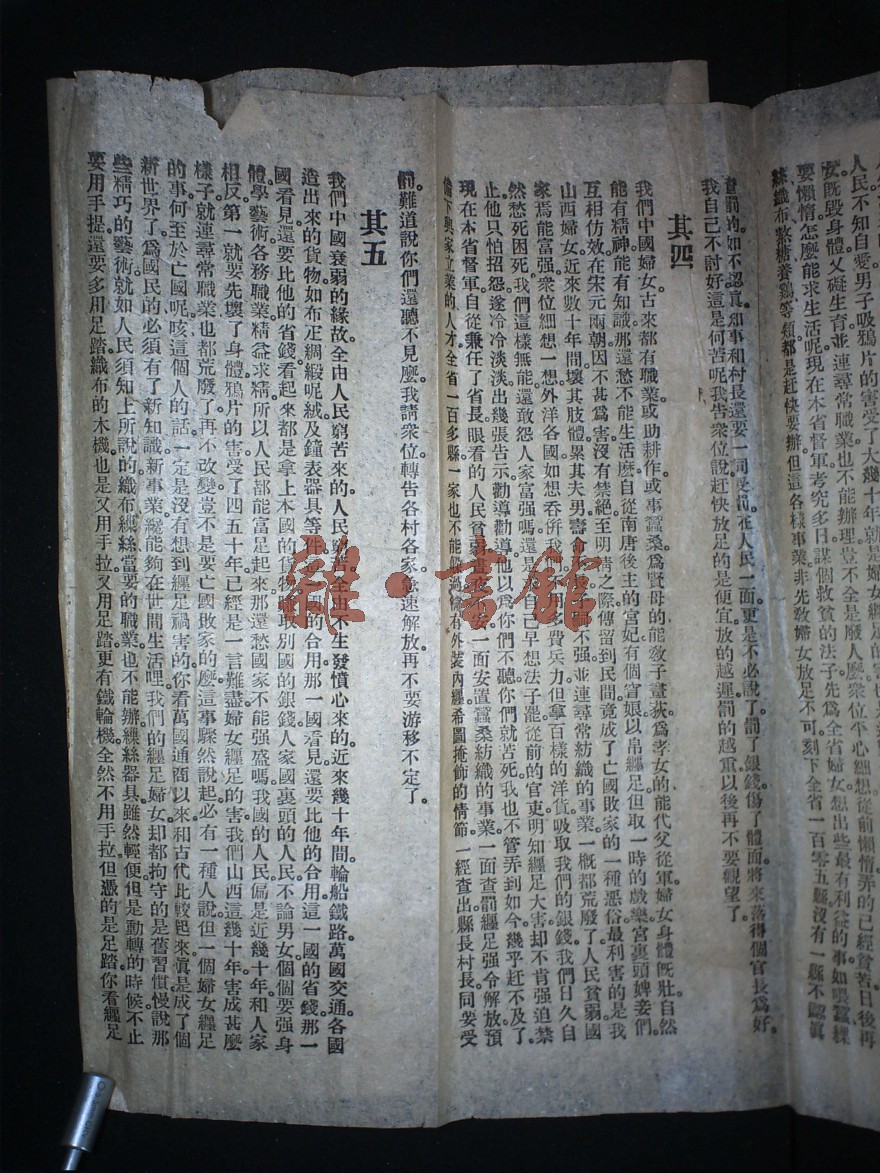 人民不知自愛男子吸鴉片的害受了大幾十年就是婦女纏足的害也
女既毀身體又礙生育並連尋常職業也不能辦理豈不全是廢人麼衆位平心細想從前懶惰的已經貧苦日後再
要懶惰怎麼能求生活呢現在本省督軍考究多日謀個救貧的法子先爲全省婦女想出些最有利益的事如喂蠶繅
絲織布熬糖養鷄等類都是赶快要辦但這各樣事業非先敎婦女放足不可刻下全省一百零五縣沒有一縣不認眞
查罰的如不認眞知事和村長還要一同受罰在人民一面更是不必說了罰了銀錢傷了體面將來落得個官長爲好
我自己不討好這是何苦呢我告衆位說赶快放足的是便宜放的越遲罰的越重以後再不要觀望了
其四
我們中國婦女古來都有職業或助耕作或事蠶桑爲賢母的能敎子畫荻爲孝女的能代父從軍婦女身體旣壯自然
能有精神能有知識那還愁不能生活麽自從南唐後主的宮妃有個窅娘以帛纏足但取一時的戲樂宮裏頭婢妾們
互相仿效在宋元兩朝因不甚爲害沒有禁絕至明清之際傳留到民間竟成了亡國敗家的一種惡俗最利害的是我
山西婦女近來數十年間壞其肢體累其夫男壽不強並連尋常紡織的事業一槪都荒廢了人民貧弱國
家焉能富强衆位細想一想外洋各國如想吞併我不用多費兵力但拿百樣的洋貨吸取我們的銀錢我們日久自
然愁死困死我們這樣無能還敢怨人家富强嗎還是我自己早想法子罷從前的官吏明知纏足大害却不肯强迫禁
止他只怕招怨遂冷冷淡淡出幾張告示勸導勸導他以爲你們不聽你們就苦死我也不管弄到如今幾乎赶不及了
現在本省督軍自從兼任了省長眼看的人民貧弱晝夜不安一面安置蠶桑紡織的事業一面查罰纏足强令解放預
備下興家立業的人才全省一百多縣一家也不能饒過倘有外裝內纏希圖掩飾的情節一經查出縣長村長同要受
罰難道說你們還聽不見麽我請衆位轉告各村各家急速解放再不要游移不定了
其五
我們中國衰弱的緣故全由人民窮苦來的人民窮苦全由不生發憤心來的近來幾十年間輪船鐵路萬國交通各國
造出來的貨物如布疋綢緞呢絨及鐘表器具等件各國的合用那一國看見還要比他的合用這一國的省錢那一
國看見還要比他的省錢看起來都是拿上本國的貨物賺取別國的銀錢人家國裏頭的人民不論男女個個要强身
體學藝術各務職業精益求精所以人民都能富足起來那還愁國家不能强盛嗎我國的人民偏是近幾十年和人家
相反第一就要先壞了身體鴉片的害受了四五十年已經是一言難盡婦女纏足的害我們山西這幾十年害成甚麼
樣子就連尋常職業也都荒廢了再不改變豈不是要亡國敗家的麼這事驟然說起必有一種人說但一個婦女纏足
的事何至於亡國呢咳這個人的話一定是沒有想到纏足禍害的你看萬國通商以來和古代比較起來眞是成了個
新世界了爲國民的必須有了新知識新事業纔能夠在世間生活哩我們的纏足婦女却都拘守的是舊習慣慢說那
些精巧的藝術就如人民須知上所說的織布繅絲當要的職業也不能辦繅絲器具雖然輕便但是動轉的時候不止
要用手提還要多用足踏織布的木機也是又用手拉又用足踏更有鐵輪機全然不用手拉但憑的是足踏你看纏足